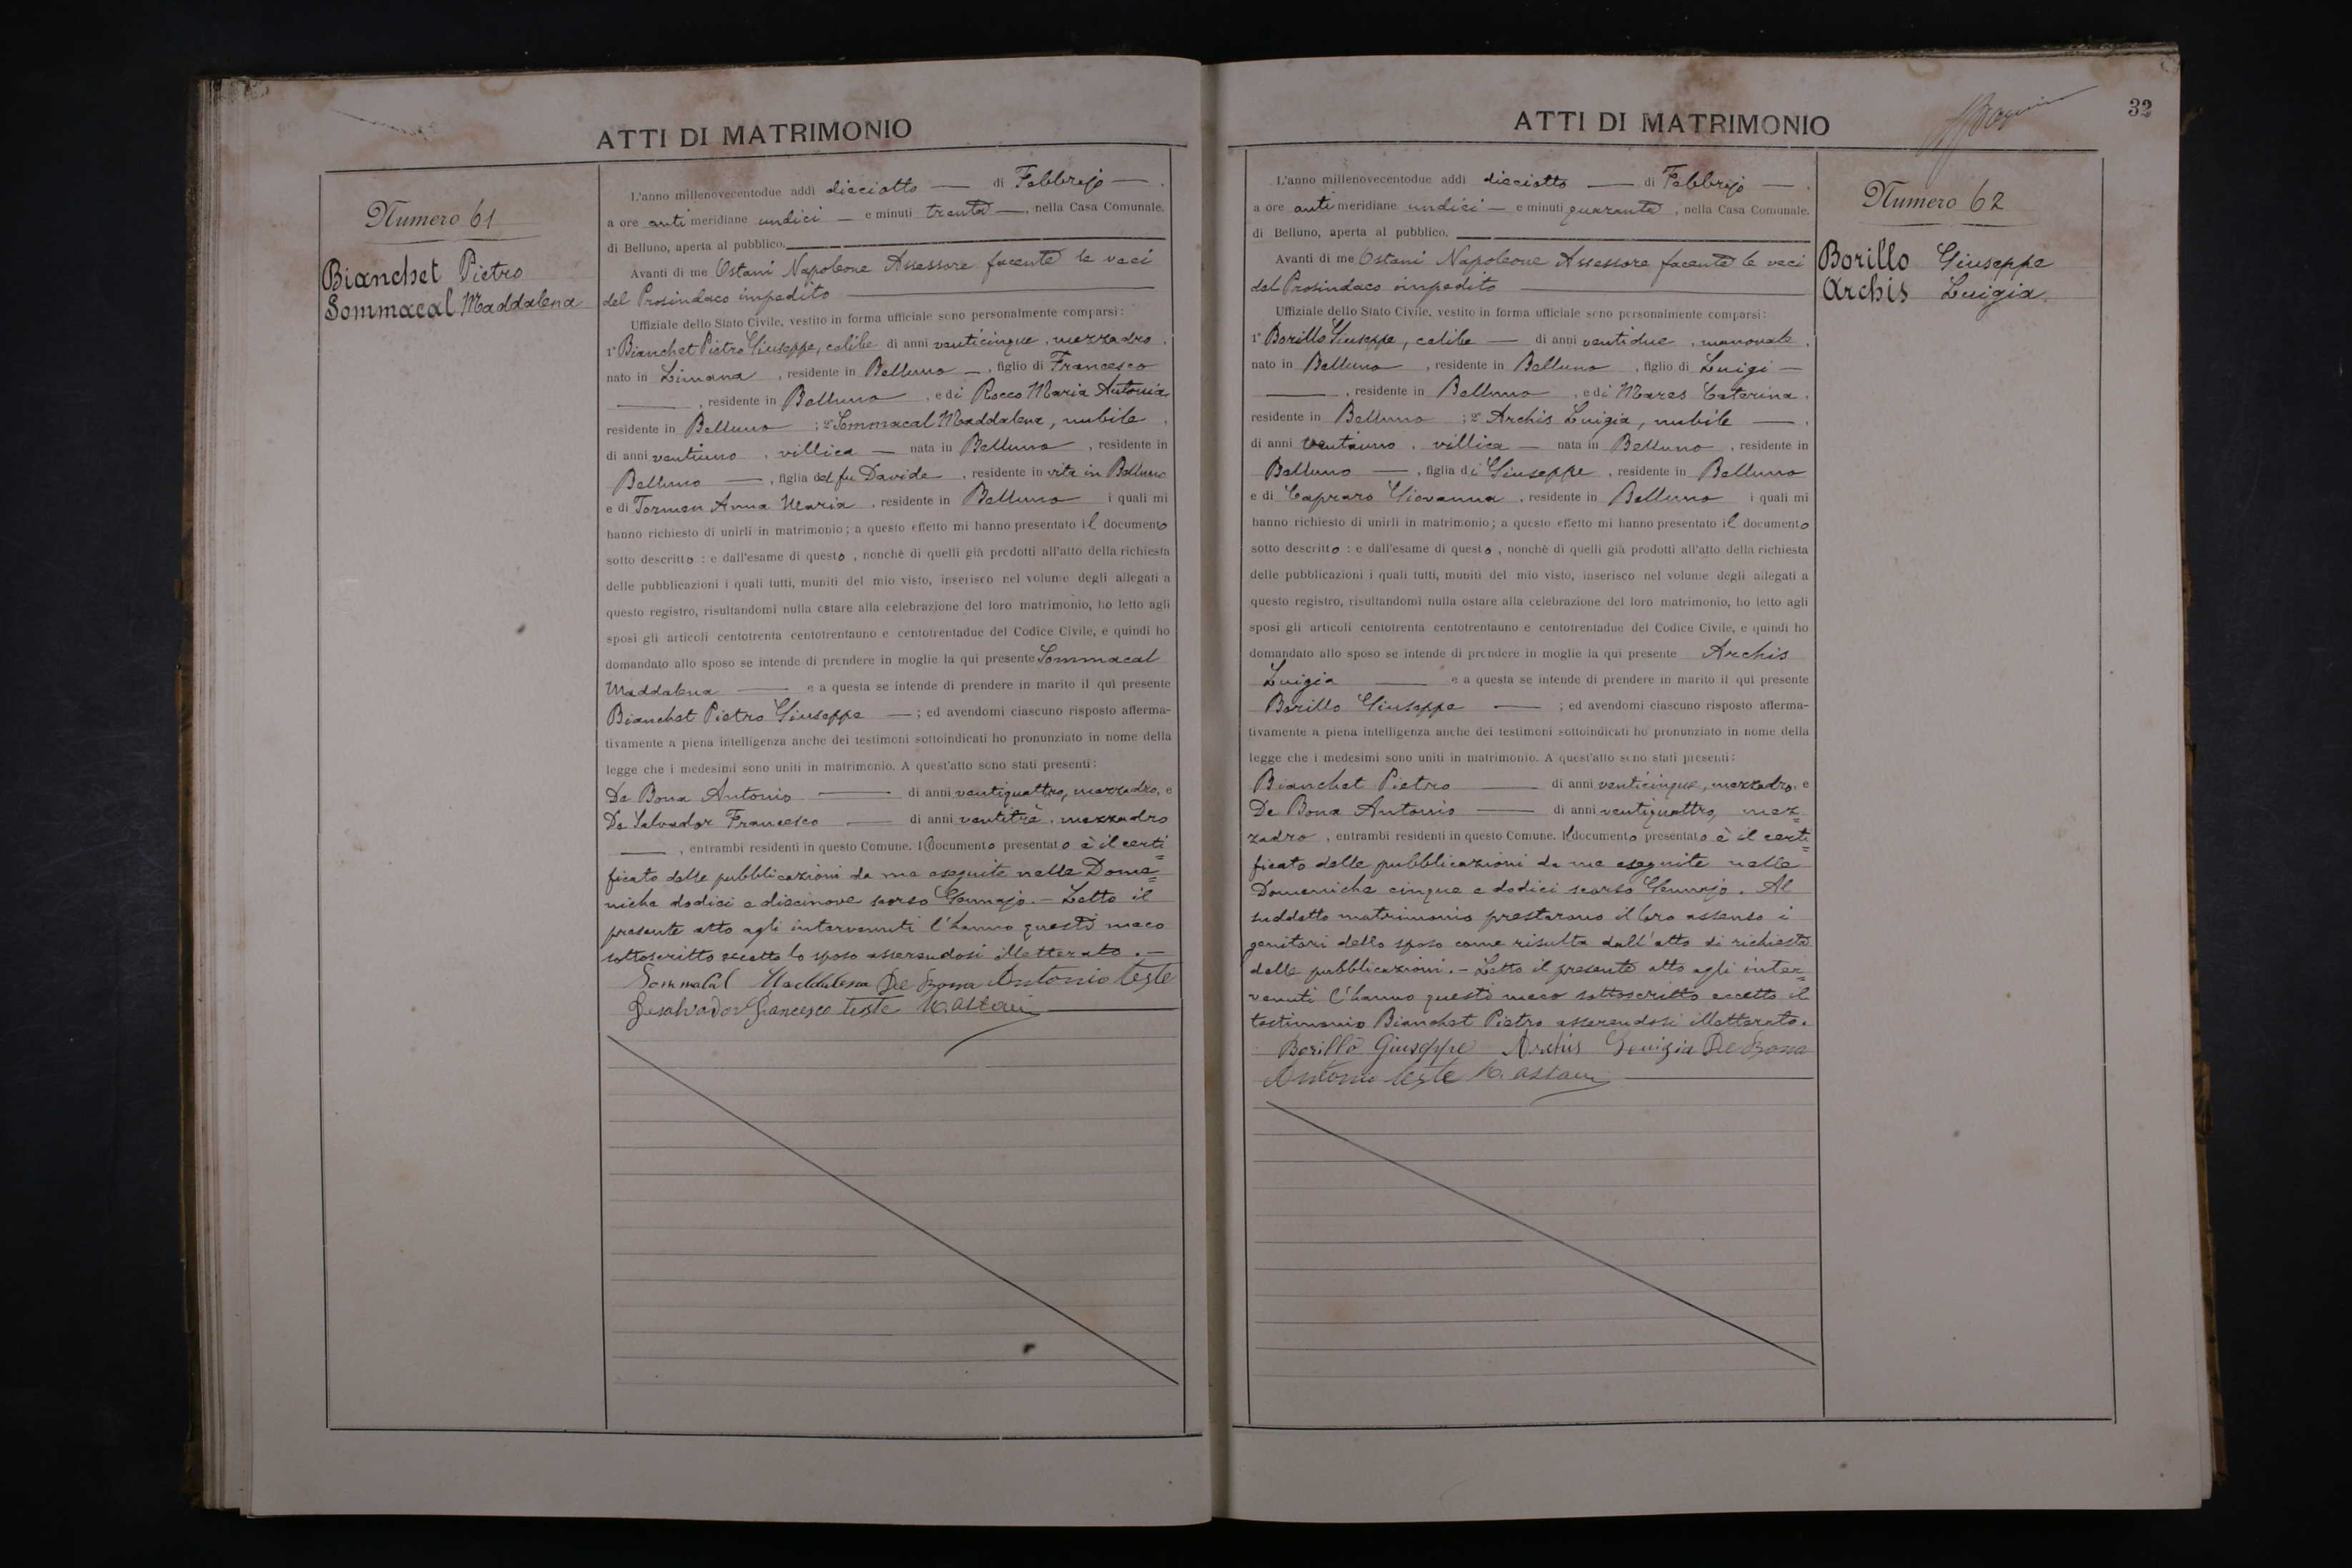 ATTI DI MATRIMONIO
Numero 61
Bianchet Pietro
Sommacal Maddalena
L'anno millenovecentodue addì dieciotto — di Febbrajo —.
a ore antimeridiane undici — e minuti trenta —, nella Casa Comunale.
di Belluno, aperta al pubblico.
Avanti di me Ostani Napoleone Assessore facente le veci
del Prosindaco impedito
Uffiziale dello Stato Civile, vestito in forma ufficiale sono personalmente comparsi:
1° Bianchet Pietro Giuseppe, celibe di anni venticinque, mezzadro,
nato in Limana, residente in Belluno —, figlio di Francesco
—, residente in Belluno, e di Rocco Maria Antonia,
residente in Belluno; 2° Sommacal Maddalena, nubile,
di anni ventiuno, villica — nata in Belluno, residente in
Belluno —, figlia del fu Davide, residente in vita in Belluno
e di Tormen Anna Maria, residente in Belluno i quali mi
hanno richiesto di unirli in matrimonio; a questo effetto mi hanno presentato il documento
sotto descritto: e dall'esame di questo, nonchè di quelli già prodotti all'atto della richiesta
delle pubblicazioni i quali tutti, muniti del mio visto, inserisco nel volume degli allegati a
questo registro, risultandomi nulla ostare alla celebrazione del loro matrimonio, ho letto agli
sposi gli articoli centotrenta centotrentauno e centotrentadue del Codice Civile, e quindi ho
domandato allo sposo se intende di prendere in moglie la qui presente Sommacal
Maddalena — e a questa se intende di prendere in marito il qui presente
Bianchet Pietro Giuseppe —; ed avendomi ciascuno risposto afferma-
tivamente a piena intelligenza anche dei testimoni sottoindicati ho pronunziato in nome della
legge che i medesimi sono uniti in matrimonio. A quest'atto sono stati presenti:
De Bona Antonio — di anni ventiquattro, mezzadro, e
De Salvador Francesco — di anni ventitrè, mezzadro
—, entrambi residenti in questo Comune. Il documento presentato è il certi=
ficato delle pubblicazioni da me eseguite nelle Dome=
niche dodici e diecinove scorso Gennajo. — Letto il
presente atto agli intervenuti l'hanno questi meco
sottoscritto eccetto lo sposo asserendosi illetterato. —
Sommacal Maddalena De Bona Antonio teste
Desalvador Francesco teste N. Ostani
ATTI DI MATRIMONIO
32
Numero 62
Borillo Giuseppe
Archis Luigia
L'anno millenovecentodue addì dieciotto — di Febbrajo —.
a ore antimeridiane undici — e minuti quaranta, nella Casa Comunale.
di Belluno, aperta al pubblico.
Avanti di me Ostani Napoleone Assessore facente le veci
del Prosindaco impedito
Uffiziale dello Stato Civile, vestito in forma ufficiale sono personalmente comparsi:
1° Borillo Giuseppe, celibe — di anni ventidue, manovale,
nato in Belluno, residente in Belluno, figlio di Luigi —
—, residente in Belluno, e di Mares Caterina,
residente in Belluno; 2° Archis Luigia, nubile —,
di anni ventiuno, villica — nata in Belluno, residente in
Belluno —, figlia di Giuseppe, residente in Belluno
e di Capraro Giovanna, residente in Belluno i quali mi
hanno richiesto di unirli in matrimonio; a questo effetto mi hanno presentato il documento
sotto descritto: e dall'esame di questo, nonchè di quelli già prodotti all'atto della richiesta
delle pubblicazioni i quali tutti, muniti del mio visto, inserisco nel volume degli allegati a
questo registro, risultandomi nulla ostare alla celebrazione del loro matrimonio, ho letto agli
sposi gli articoli centotrenta centotrentauno e centotrentadue del Codice Civile, e quindi ho
domandato allo sposo se intende di prendere in moglie la qui presente Archis
Luigia — e a questa se intende di prendere in marito il qui presente
Borillo Giuseppe —; ed avendomi ciascuno risposto afferma-
tivamente a piena intelligenza anche dei testimoni sottoindicati ho pronunziato in nome della
legge che i medesimi sono uniti in matrimonio. A quest'atto sono stati presenti:
Bianchet Pietro — di anni venticinque, mezzadro, e
De Bona Antonio — di anni ventiquattro, mez=
zadro, entrambi residenti in questo Comune. Il documento presentato è il certi=
ficato delle pubblicazioni da me eseguite nelle
Domeniche cinque e dodici scorso Gennajo. Al
suddetto matrimonio prestarono il loro assenso i
genitori dello sposo come risulta dall'atto di richiesta
delle pubblicazioni. — Letto il presente atto agli inter=
venuti l'hanno questi meco sottoscritto eccetto il
testimonio Bianchet Pietro asserendosi illetterato.
Borillo Giuseppe Archis Louigia De Bona
Antonio teste N. Ostani